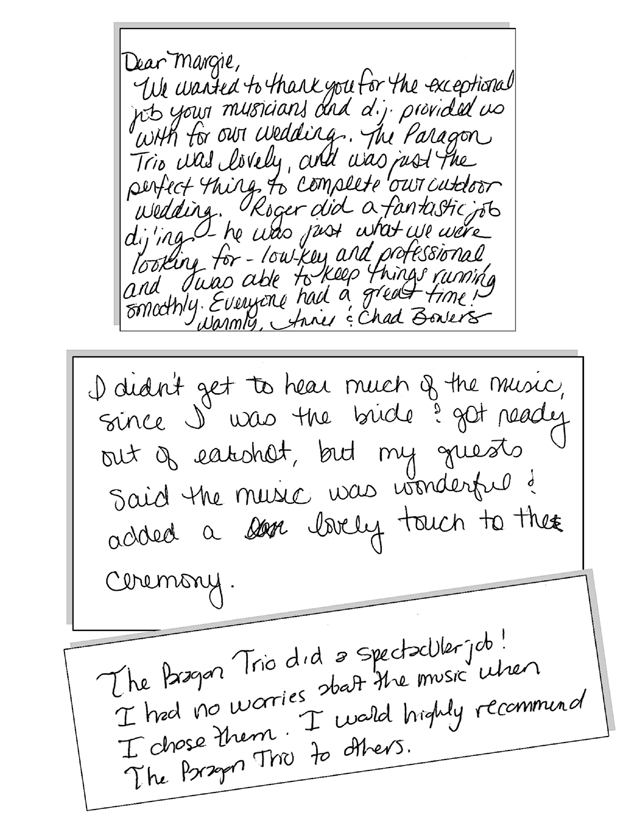 Dear Margie,
We wanted to thank you for the exceptional
job your musicians and d.j. provided us
with for our wedding. The Paragon
Trio was lovely, and was just the
perfect thing to complete our outdoor
wedding. Roger did a fantastic job
dj'ing - he was just what we were
looking for - low-key and professional
and was able to keep things running
smoothly. Everyone had a great time!
Warmly, & Chad Bowers
I didn't get to hear much of the music,
since I was the bride & got ready
out of earshot, but my guests
said the music was wonderful &
added a lovely touch to the
ceremony.
The Paragon Trio did a spectacular job!
I had no worries about the music when
I chose them. I would highly recommend
The Paragon Trio to others.